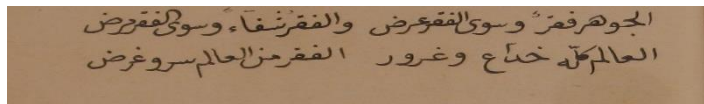 الجوهر فقرٌ وسوى الفقر عرض والفقر شفاء وسوى الفقر مرض
العالم كلّه خداع وغرور الفقر من العالم سرو غرض